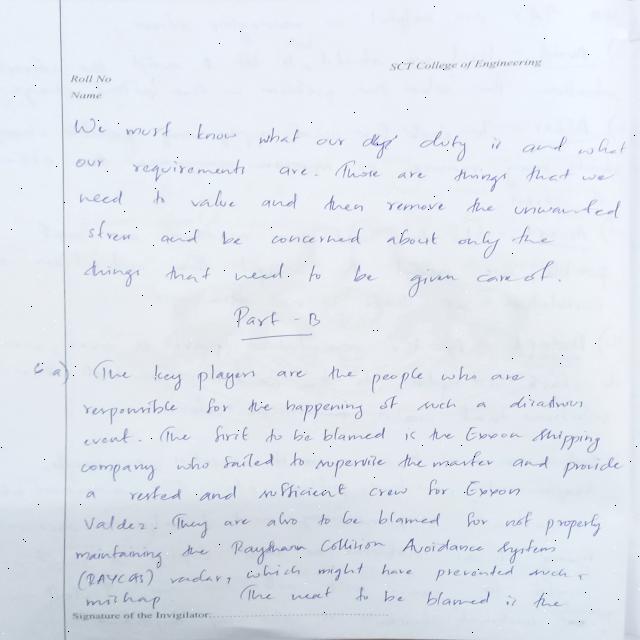 SCT College of Engineering
Roll No
Name
We must know what our duty is and what
our requirements are. Those are things that we
need to value and then remove the unwanted
stress and be concerned about only the
things that need to be given care of.
Part - B
6 a). The key players are the people who are
responsible for the happening of such a disastrous
event. The first to be blamed is the Exxon Shipping
company who failed to supervise the master and provide
a rested and sufficient crew for Exxon
Valdez. They are also to be blamed for not properly
maintaining the Raytheon Collision Avoidance System
(RAYCAS) radar, which might have prevented such
mishap The next to be blamed is the
Signature of the Invigilator: